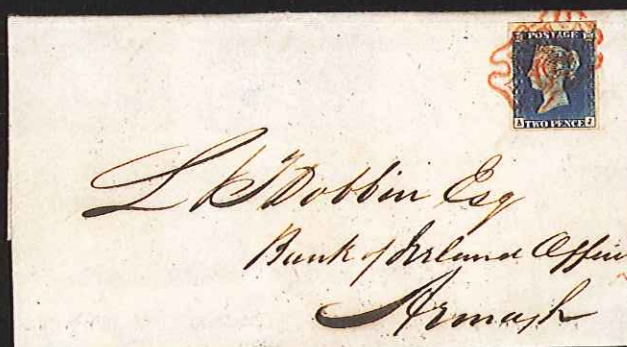 POSTAGE
A J
TWO PENCE
L Dobbin Esq
Bank of Ireland Office
Armagh